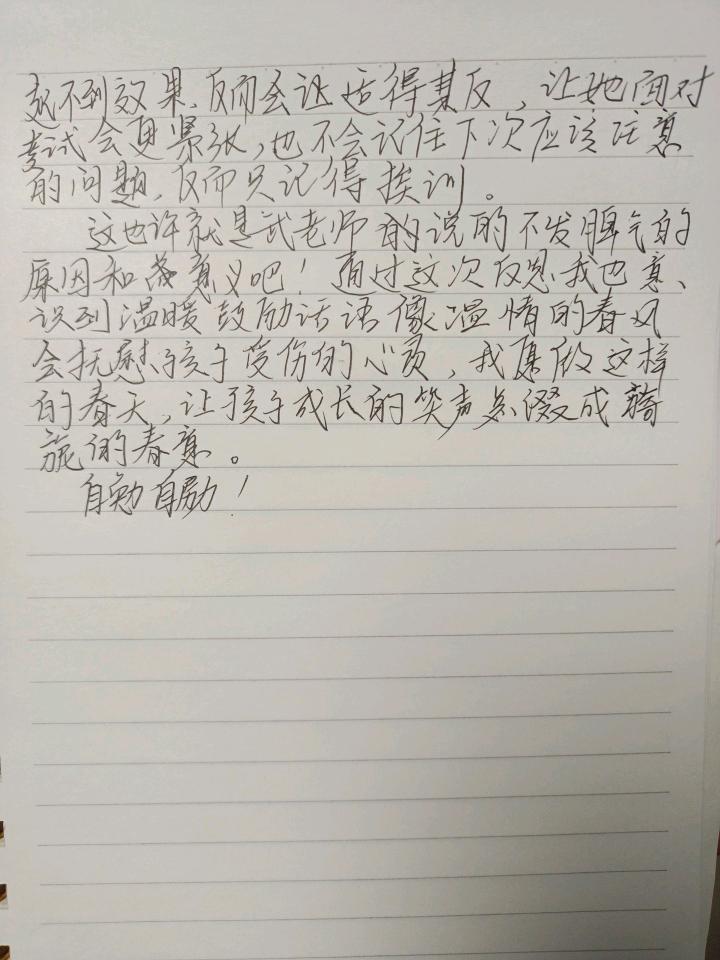 起不到效果,反而会让适得其反,让她面对
考试会更紧张,也不会记住下次应该注意
的问题,反而只记得挨训。
这也许就是武老师的说的不发脾气的
原因和意义吧!通过这次反思我也意
识到温暖鼓励话语像温情的春风
会抚慰孩子受伤的心灵,我愿做这样
的春天,让孩子成长的笑声点缀成旖
旎的春意。
自勉自励!